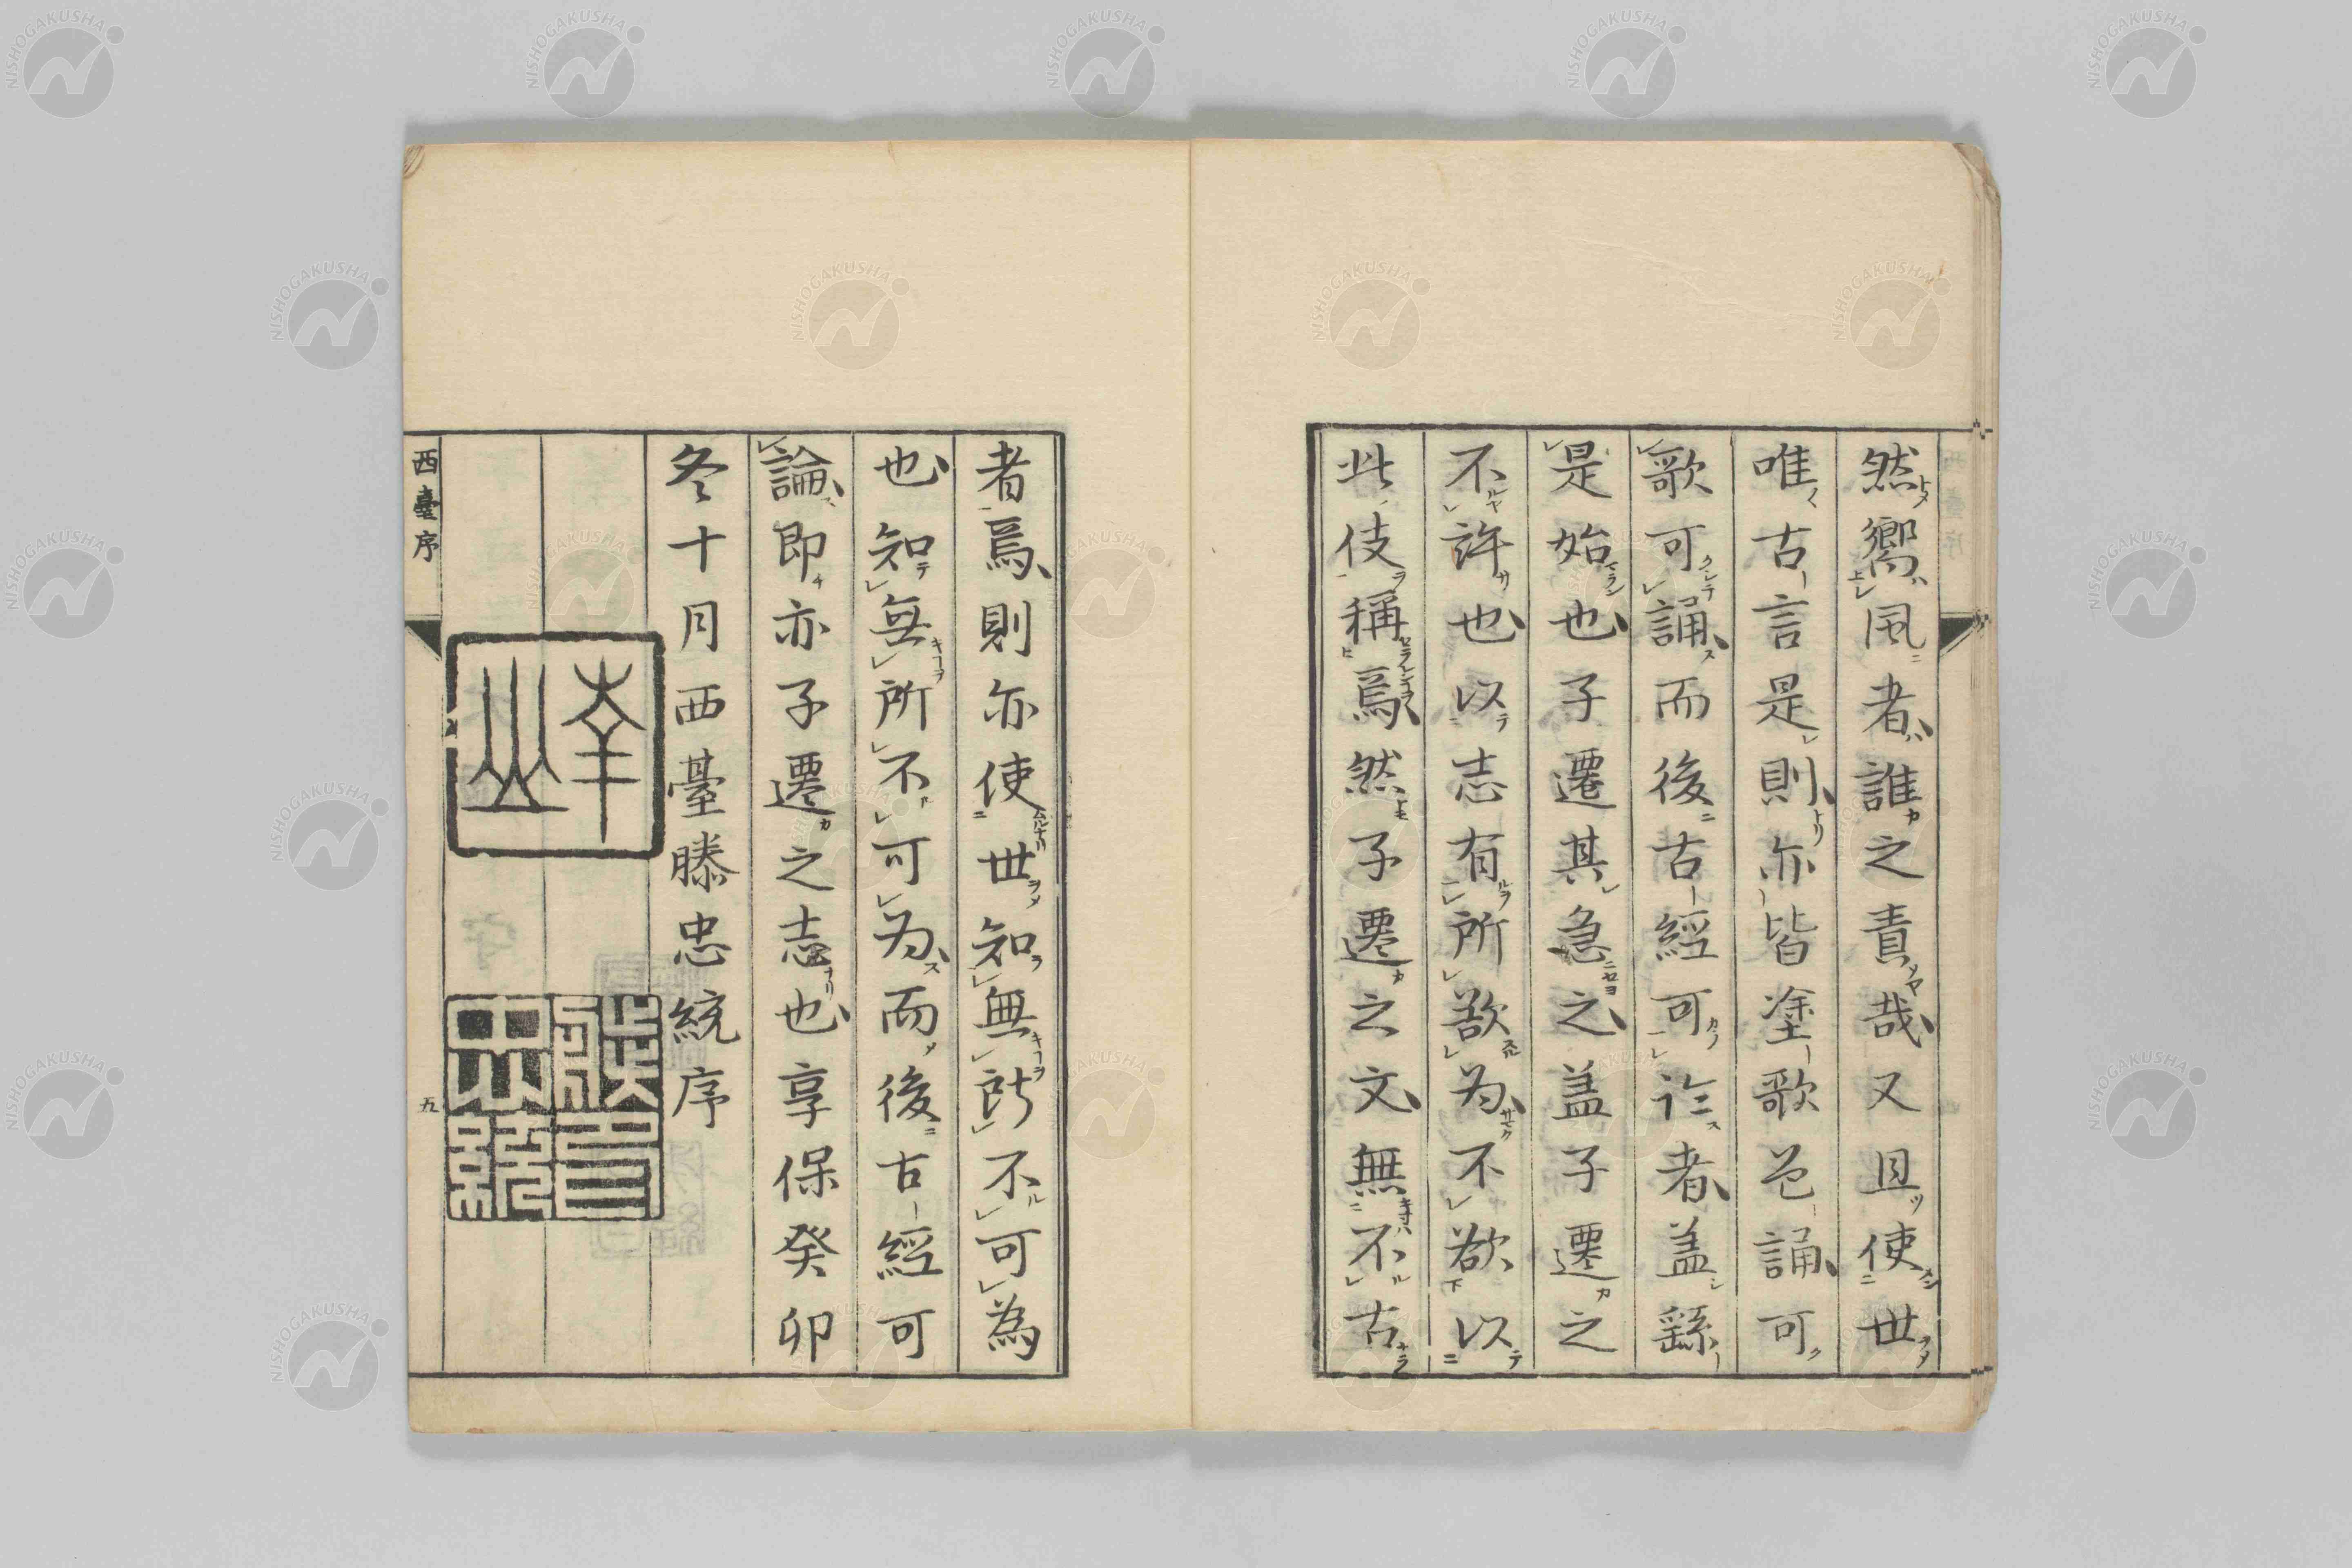 然嚮風者誰之責哉又且使世
唯古言是則亦皆塗歌邑誦可
歌可誦而後古經可訡者盖繇
是始也子遷其急之盖子遷之
不許也以志有所欲為不欲以
此伎稱焉然子遷之文無不古
者焉則亦使世知無所不可為
也知無所不可為而後古經可
論即亦子遷之志也享保癸卯
冬十月西臺滕忠統序
西臺序
五
NISHOGAKUSHA